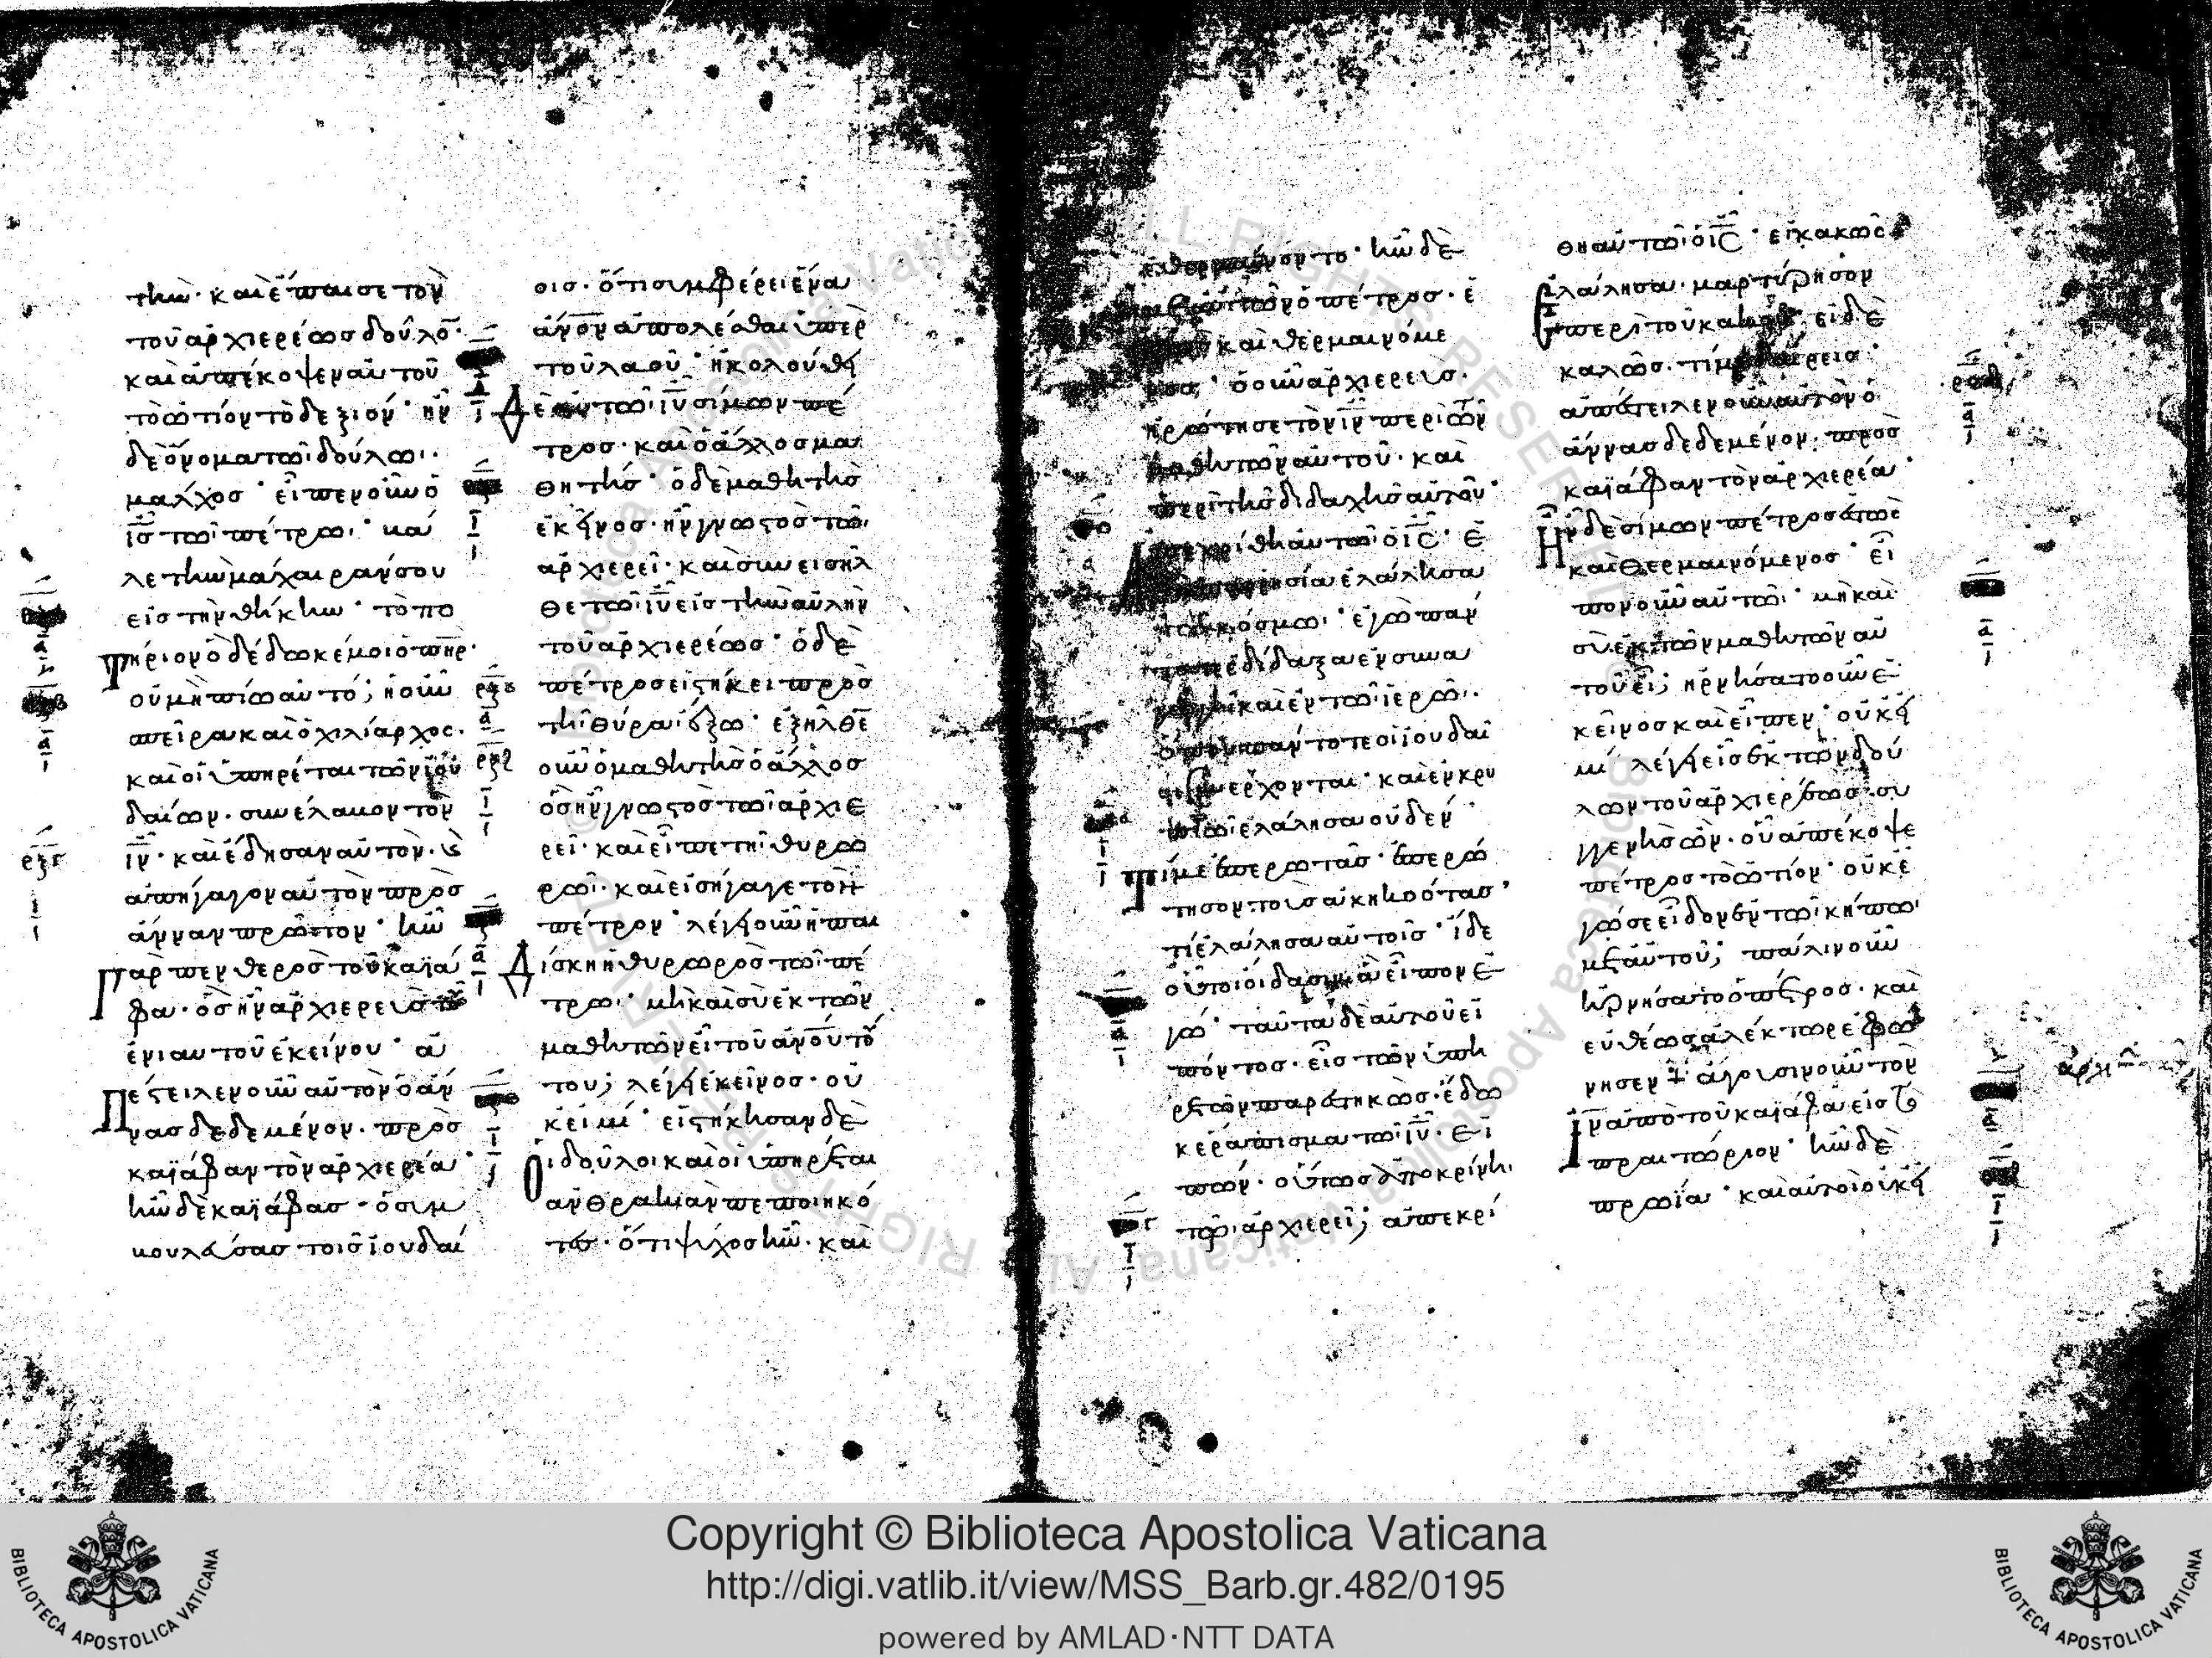 τὴν· καὶ ἔπαισε τὸν
τοῦ ἀρχιερέως δοῦλο̅·
καὶ ἀπέκοψεν αὐτοῦ
τὸ ὠτίον τὸ δεξιόν· ἦν
δὲ ὄνομα τῶι δούλωι·
μάλχοσ· εἶπεν οὖν ὁ
ι̅σ̅ τῶι πέτρωι· κά
λε τὴν μάχαιραν σου
εἰσ τὴν θήκην· τὸ πο
τήριον ὃ δέδωκέ μοι ὁ π̅η̅ρ̅·
οὐ μὴ πίω αὐτό; ἡ οὖν
σπεῖρα καὶ ὁ χιλίαρχοσ·
καὶ οἱ ὑπηρέται τῶν ἰου
δαίων· συνέλαβον τὸν
ι̅ν̅· καὶ ἔδησαν αὐτὸν· καὶ
ἀπήγαγον αὐτὸν πρὸσ
ἄνναν πρῶτον· ἦν
γὰρ πενθερὸσ τοῦ καϊά
φα· ὃσ ἦν ἀρχιερεὺσ τοῦ
ἐνιαυτοῦ ἐκείνου· ἀ
πέστειλεν οὖν αὐτὸν ὁ ἄν
νασ δεδεμένον· πρὸσ
καϊάφαν τὸν ἀρχιερέα·
ἦν δὲ καϊάφασ· ὁ συμ
βουλεύσασ τοῖσ ἰουδαί
οισ· ὅτι συμφέρει ἕνα
α̅ν̅ο̅ν̅ ἀπολέσθαι ὑπὲρ
τοῦ λαοῦ· ἠκολούθει
δὲ τῶι ι̅υ̅ σίμων πέ
τροσ· καὶ ὁ ἄλλοσ μα
θητήσ· ὁ δὲ μαθητὴσ
ἐκεῖνοσ· ἦν γνωστὸσ τῶι
ἀρχιερεῖ· καὶ συνεισῆλ
θε τῶι ι̅υ̅ εἰσ τὴν αὐλὴν
τοῦ ἀρχιερέωσ· ὁ δὲ
πέτροσ εἱστήκει πρὸσ
τῆι θύραι ἔξω· ἐξῆλθε̅
οὖν ὁ μαθητὴσ ὁ ἄλλοσ
ὃσ ἦν γνωστὸσ τῶι ἀρχιε
ρεῖ· καὶ εἶπε τῆι θυρω
ρῶι· καὶ εἰσήγαγε τὸν
πέτρον· λέγει οὖν ἡ παι
δίσκη ἡ θυρωρὸσ τῶι πέ
τρωι· μὴ καὶ σὺ ἐκ τῶν
μαθητῶν εἶ τοῦ α̅ν̅ο̅υ̅ τού
του; λέγει ἐκεῖνοσ· οὐ
κ εἰμί· εἱστήκησαν δὲ
οἱ δοῦλοι καὶ οἱ ὑπηρέται
ἀνθρακιὰν πεποιηκό
τεσ· ὅτι ψῦχοσ ἦν· καὶ
ἐθερμαίνοντο· ἦν δὲ
μετ' αὐτῶν ὁ πέτροσ· ἑ
καὶ θερμαινόμε
νοσ· ὁ οὖν ἀρχιερεὺσ·
ἠρώτησε τὸν ι̅ν̅ περὶ τῶν
μαθητῶν αὐτοῦ· καὶ
περὶ τῆσ διδαχῆσ αὐτοῦ·
ἀπεκρίθη αὐτῶι ὁ ι̅σ̅· ἐ
παρρησίαι ἐλάλησα
τῶι κόσμωι· ἐγὼ πάν
τοτε ἐδίδαξα ἐν συνα
γωγῆι καὶ ἐν τῶι ἱερῶι·
ὅπου πάντοτε οἱ ἰουδαῖ
οι συνέρχονται· καὶ ἐν κρυ
πτῶι ἐλάλησα οὐδέν·
τί με ἐπερωτᾶσ· ἐπερώ
τησον τοὺσ ἀκηκοότασ·
τί ἐλάλησα αὐτοῖσ· ἴδε
οὗτοι οἴδασιν ἃ εἶπον ἐ
γώ· ταῦτα δὲ αὐτοῦ εἰ
πόντοσ· εἷσ τῶν ὑπη
ρετῶν παρεστηκὼσ· ἔδω
κε ῥάπισμα τῶι ι̅υ̅· εἰ
πών· οὕτωσ ἀποκρίνηι
τῶι ἀρχιερεῖ; ἀπεκρί
θη αὐτῶι ὁ ι̅σ̅· εἰ κακῶσ
ἐλάλησα· μαρτύρησον
περὶ τοῦ κακοῦ· εἰ δὲ
καλῶσ· τί με δαίρεισ·
ἀπέστειλεν οὖν αὐτὸν ὁ
ἄννασ δεδεμένον· πρὸσ
καϊάφαν τὸν ἀρχιερέα·
ἦν δὲ σίμων πέτροσ ἑστὼσ
καὶ θερμαινόμενοσ· εἶ
πον οὖν αὐτῶι· μὴ καὶ
σὺ ἐκ τῶν μαθητῶν αὐ
τοῦ εἶ; ἠρνήσατο οὖν ἐ
κεῖνοσ καὶ εἶπεν· οὐκ εἰ
μί· λέγει εἷσ ἐκ τῶν δού
λων τοῦ ἀρχιερέωσ· συ
γγενὴσ ὢν· οὗ ἀπέκοψε
πέτροσ τὸ ὠτίον· οὐκ ἐ
γώ σε εἶδον ἐν τῶι κήπωι
μετ' αὐτοῦ; πάλιν οὖν
ἠρνήσατο ὁ πέτροσ· καὶ
εὐθέωσ ἀλέκτωρ ἐφώ
νησεν ἄγουσιν οὖν τὸν
ι̅ν̅ ἀπὸ τοῦ καϊάφα εἰσ τὸ
πραιτώριον· ἦν δὲ
πρωΐα· καὶ αὐτοὶ οὐκ εἰ
Copyright © Biblioteca Apostolica Vaticana
http://digi.vatlib.it/view/MSS_Barb.gr.482/0195
powered by AMLAD·NTT DATA
BIBLIOTECA APOSTOLICA VATICANA
BIBLIOTECA APOSTOLICA VATICANA